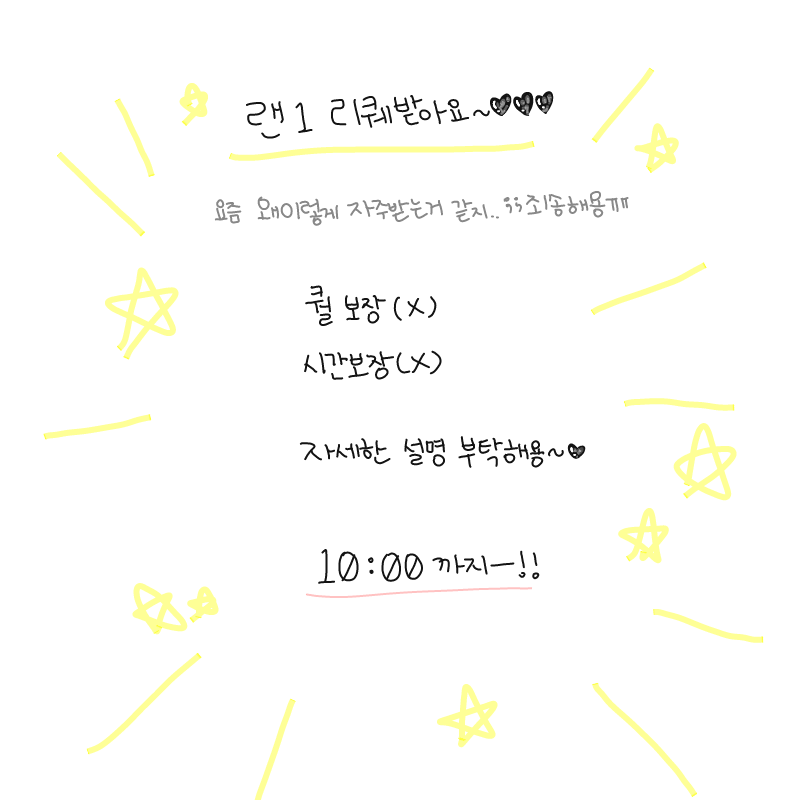 랜1 리퀘받아요~♥♥♥
요즘 왜이렇게 자주받는거 같지..;;죄송해용ㅠㅠ
퀄 보장 (X)
시간보장(X)
자세한 설명 부탁해용~♥
10:00 까지ㅡ!!